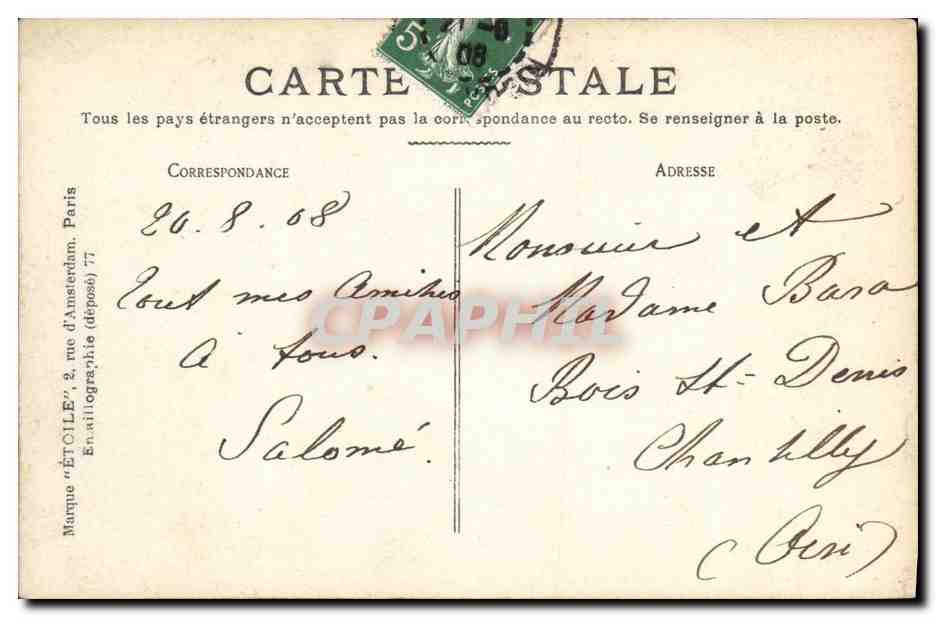 CARTE POSTALE
Tous les pays étrangers n'acceptent pas la correspondance au recto. Se renseigner à la poste.
CORRESPONDANCE
20.8.08
Tout mes Amities
à tous.
Salomé.
ADRESSE
Monsieur et
Madame Bara
Bois St-Denis
Chantilly
(Oise)
Marque "ÉTOILE", 2, rue d'Amsterdam. Paris
Emaillographie (déposé) 77
5
08
CPAPHIL